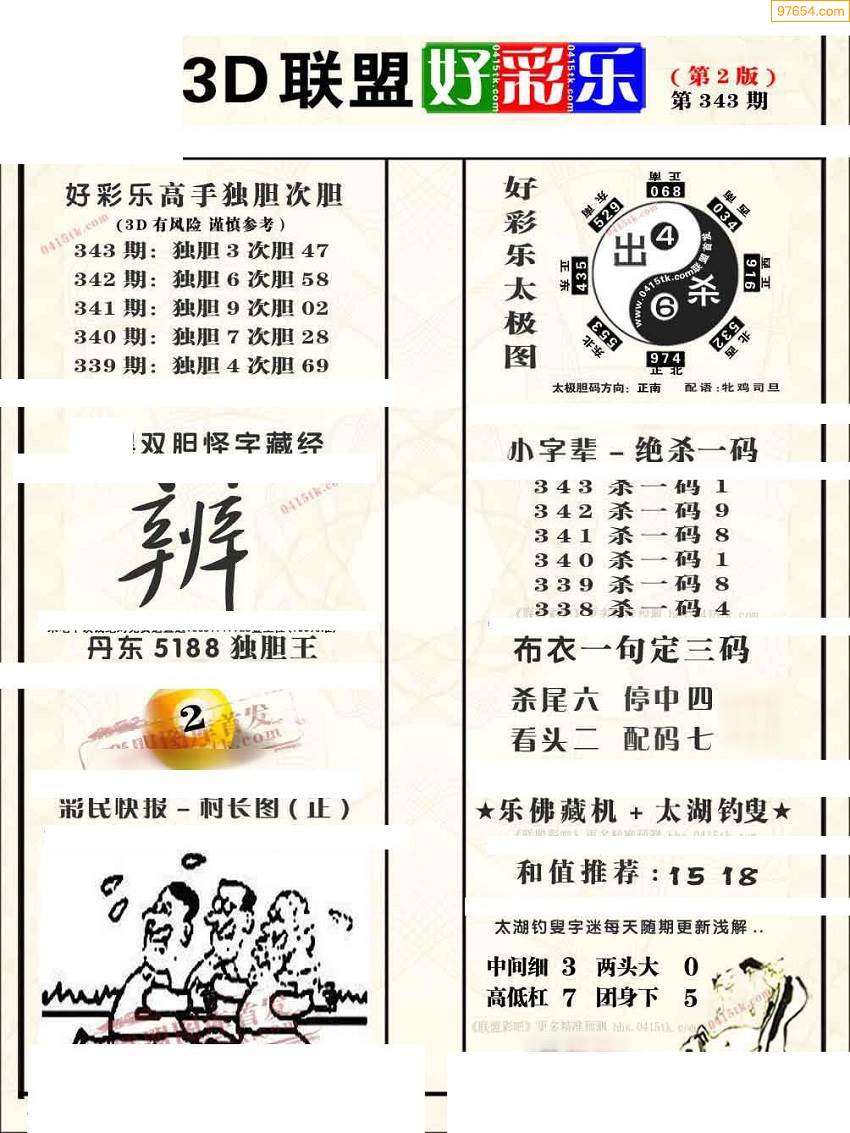 97654.com
3D 联盟 好彩乐
(第2版)
第 343 期
好彩乐高手独胆次胆
(3D有风险 谨慎参考)
343 期: 独胆 3 次胆 47
342 期: 独胆 6 次胆 58
341 期: 独胆 9 次胆 02
340 期: 独胆 7 次胆 28
339 期: 独胆 4 次胆 69
0415tk.com
双胆怪字藏经
辨
0415tk.com
丹东 5188 独胆王
2
彩民快报-村长图(正)
好彩乐太极图
正南 068
西南 034
正西 916
西北 532
正北 974
东北 553
正东 435
东南 529
出 4
杀 6
www.0415tk.com联盟首发
太极胆码方向: 正南 配语: 牝鸡司旦
小字辈-绝杀一码
343 杀一码 1
342 杀一码 9
341 杀一码 8
340 杀一码 1
339 杀一码 8
338 杀一码 4
布衣一句定三码
杀尾六 停中四
看头二 配码七
★乐佛藏机+太湖钓叟★
和值推荐:15 18
太湖钓叟字迷每天随期更新浅解..
中间细 3 两头大 0
高低杠 7 团身下 5
《联盟彩吧》更多精准预测 bbs.0415tk.com
0415tk.com